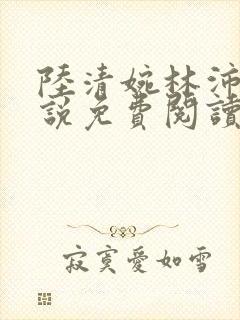 陸清婉林沛
說免費閱讀
寂寞愛如雪